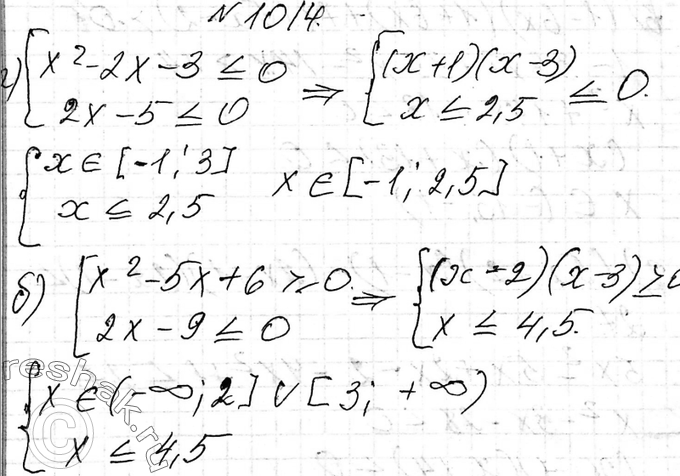 №1014.
а) { x² - 2x - 3 ≤ 0 ⇒ { (x+1)(x-3) ≤ 0.
2x - 5 ≤ 0 x ≤ 2,5
{ x ∈ [-1; 3] x ∈ [-1; 2,5]
x ≤ 2,5
б) { x² - 5x + 6 ≥ 0. ⇒ { (x-2)(x-3) ≥ 0
2x - 9 ≤ 0 x ≤ 4,5.
{ x ∈ (-∞; 2] ∨ [3; +∞)
x ≤ 4,5
reshak.ru